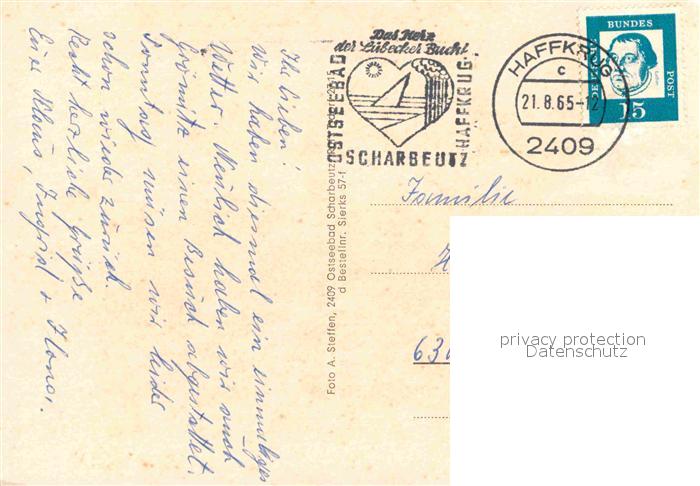 Ihr lieben!
Wir haben diesmal ein einmaliges
Wetter. Neulich haben wir auch
Grömitz einen Besuch abgestattet.
Sonntag müssen wir leider
schon wieder zurück.
Recht herzliche Grüße
Eure Klaus, Ingrid + Ilona.
Foto A. Steffen, 2409 Ostseebad Scharbeutz
d Bestellnr. Sierks 57-f
Das Herz
der Lübecker Bucht
OSTSEEBAD
HAFFKRUG
SCHARBEUTZ
HAFFKRUG
c
21.8.65-12
2409
DEUTSCHE
BUNDES
POST
15
Familie
H
630
privacy protection
Datenschutz